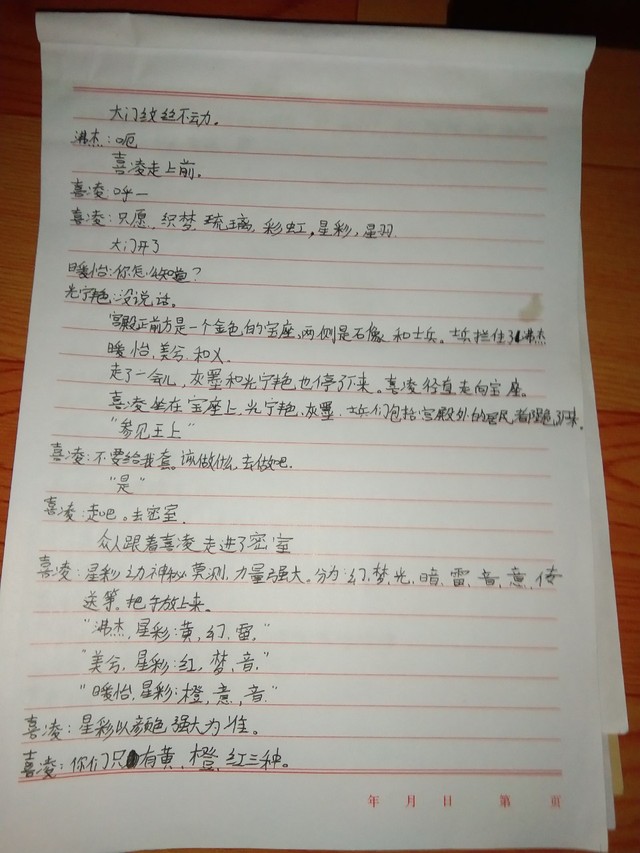 大门纹丝不动。
沸杰：呃
喜凌走上前。
喜凌：呼一
喜凌：只愿，织梦，琉璃，彩虹，星彩，星羽
大门开了
暖怡：你怎么知道？
光宁艳：没说话。
宫殿正前方是一个金色的宝座，两侧是石像和士兵。士兵拦住了沸杰
暖怡，美兮，和乂。
走了一会儿，灰墨和光宁艳也停了下来。喜凌径直走向宝座。
喜凌坐在宝座上，光宁艳，灰墨，士兵们包括宫殿外的居民，都跪了下来。
"参见王上"
喜凌：不要给我套。该做什么，去做吧。
"是"
喜凌：走吧。去密室。
众人跟着喜凌走进了密室
喜凌：星彩力神秘莫测，力量强大。分为：幻，梦，光，暗，雷，音，意，传
送等。把手放上来。
"沸杰，星彩：黄，幻，雷，"
"美兮，星彩：红，梦，音，"
"暖怡，星彩：橙，意，音，"
喜凌：星彩以颜色强大为准。
喜凌：你们只有黄，橙，红三种。
年 月 日 第 页